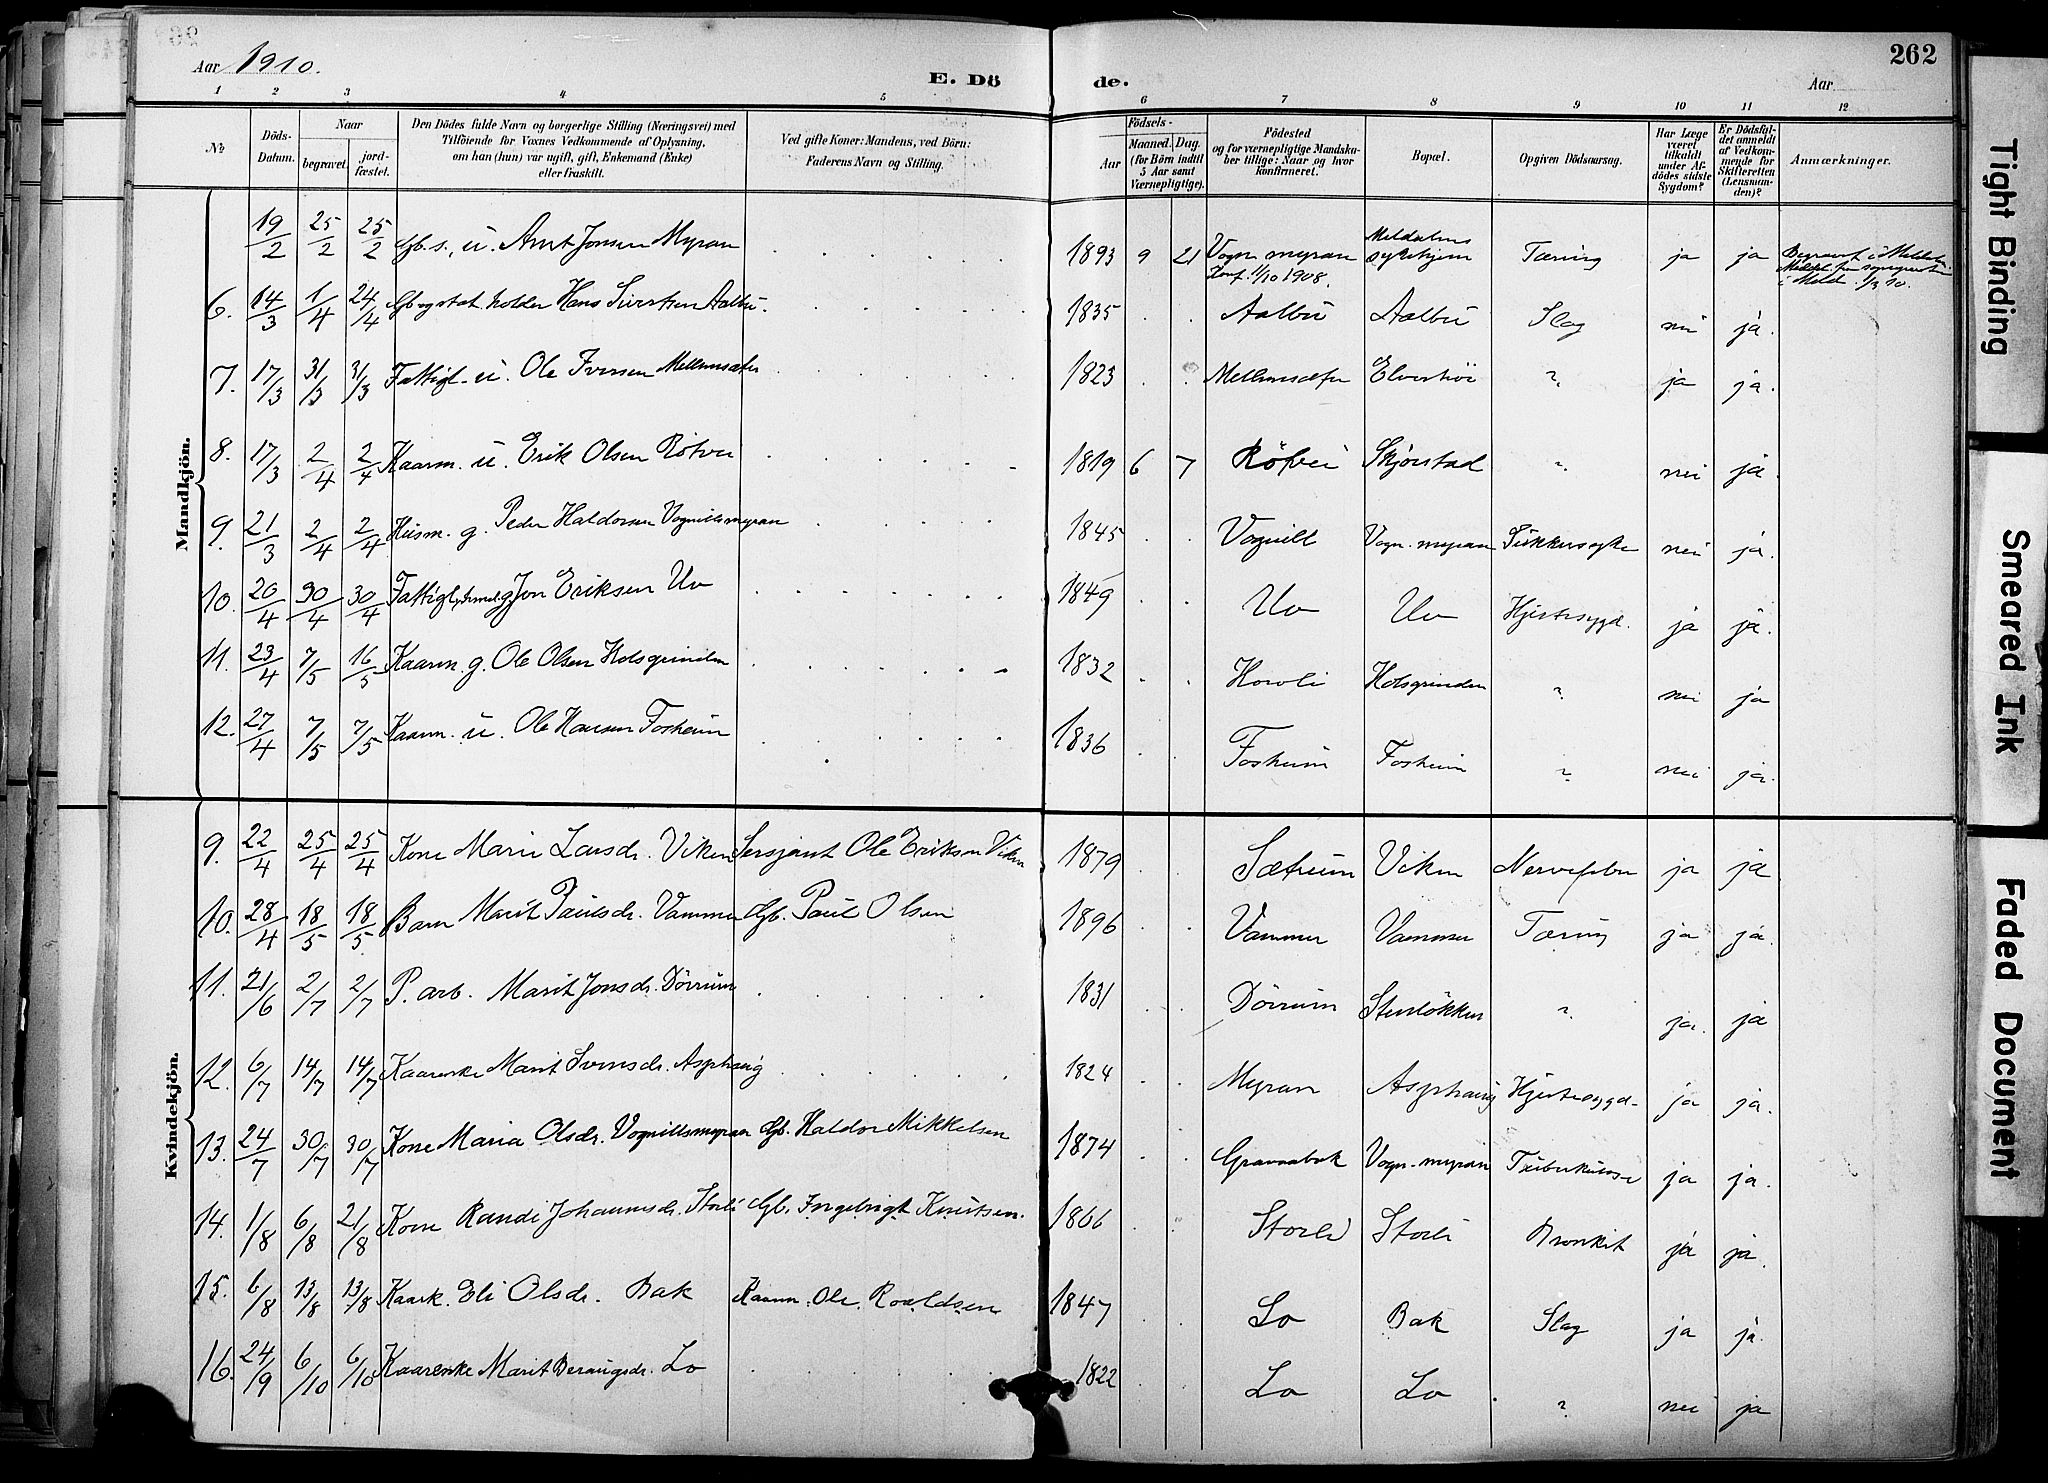 Aar 1910.
E. Dö
de.
Aar
262
1 2 3 4 5 6 7 8 9 10 11 12
No
Döds-Datum.
Naar
begravet.
jord-fæstet.
Den Dödes fulde Navn og borgerlige Stilling (Næringsvei) med
Tilföiende for Voxnes Vedkommende af Oplysning,
om han (hun) var ugift, gift, Enkemand (Enke)
eller fraskilt.
Ved gifte Koner: Mandens, ved Börn:
Faderens Navn og Stilling.
Födsels-
Aar
Maaned. Dag.
(for Börn indtil
5 Aar samt
Værnepligtige).
Födested
og for værnepligtige Mandska-
ber tillige: Naar og hvor
konfirmeret.
Bopæl.
Opgiven Dödsaarsag.
Har Læge
været
tilkaldt
under Af-
dödes sidste
Sygdom?
Er Dödsfal-
det anmeldt
af Vedkom-
mende for
Skifteretten
(Lensman-
den)?
Anmærkninger.
Mandkjön.
19/2 25/2 25/2 Gb. s., u. Arnt Jonsen Myran 1893 9 21 Vogn. myran Konf. 11/10 1908. Meldalens sykehjem Tæring ja ja Begravet i Meldal
6. 14/3 1/4 24/4 holder Hans Sivertsen Aalbu. 1835 Aalbu Aalbu Slag nei ja.
7. 17/3 31/3 31/3 Fattigl. u. Ole Iversen Mellemsæter 1823 Mellemsæter " ja ja.
8. 17/3 2/4 2/4 Kaarm. u. Erik Olsen Rötvei 1819 6 7 Rötvei Skjörstad " nei ja
9. 21/3 2/4 2/4 Husm. g. Peder Haldorsen Vognillsmyran 1845 Vognill Vogn. myran Sukkersyke nei ja.
10. 20/4 30/4 30/4 Fattigl. g. Jon Eriksen Uv 1849 Uv Uv Hjertesygd. ja ja.
11. 23/4 7/5 16/5 Kaarm. g. Ole Olsen Holsgrinden 1832 Hovoli Holsgrinden " nei ja
12. 27/4 7/5 7/5 Kaarm. u. Ole Hansen Foskeim 1836 Foskeim Foskeim " nei ja.
Kvindekjön.
9. 22/4 25/4 25/4 Kone Marie Larsdr. Viken Sersjant Ole Eriksen Viken 1879 Sætrum Viken Nervefeber ja ja
10. 28/4 18/5 18/5 Barn Marit Paulsdr. Vammer Gb. Paul Olsen 1896 Vammer Vammer Tæring ja ja.
11. 21/6 2/7 2/7 P. arb. Marit Jonsdr. Dörrum 1831 Dörrum Stenlökken " ja. ja
12. 6/7 14/7 14/7 Kaarenke Marit Svensdr. Asphaug 1824 Myran Asphaug Hjertesygd. ja ja.
13. 24/7 30/7 30/7 Kone Maria Olsdr. Vognillsmyran Gb. Haldor Mikkelsen 1874 Gravaabak Vogn. myran Tuberkulose ja ja.
14. 1/8 6/8 21/8 Kone Randi Johannesdr. Storli Gb. Ingebrigt Knutsen. 1866 Storli Storli Bronkit ja ja.
15. 6/8 13/8 13/8 Kaark. Eli Olsdr. Bak Kaarm. Ole Roaldsen 1847 Lo Bak Slag ja ja.
16. 24/9 6/10 6/10 Kaarenke Marit Beraugsdr. Lo 1822 Lo Lo " nei ja
Tight Binding
Smeared Ink
Faded Document